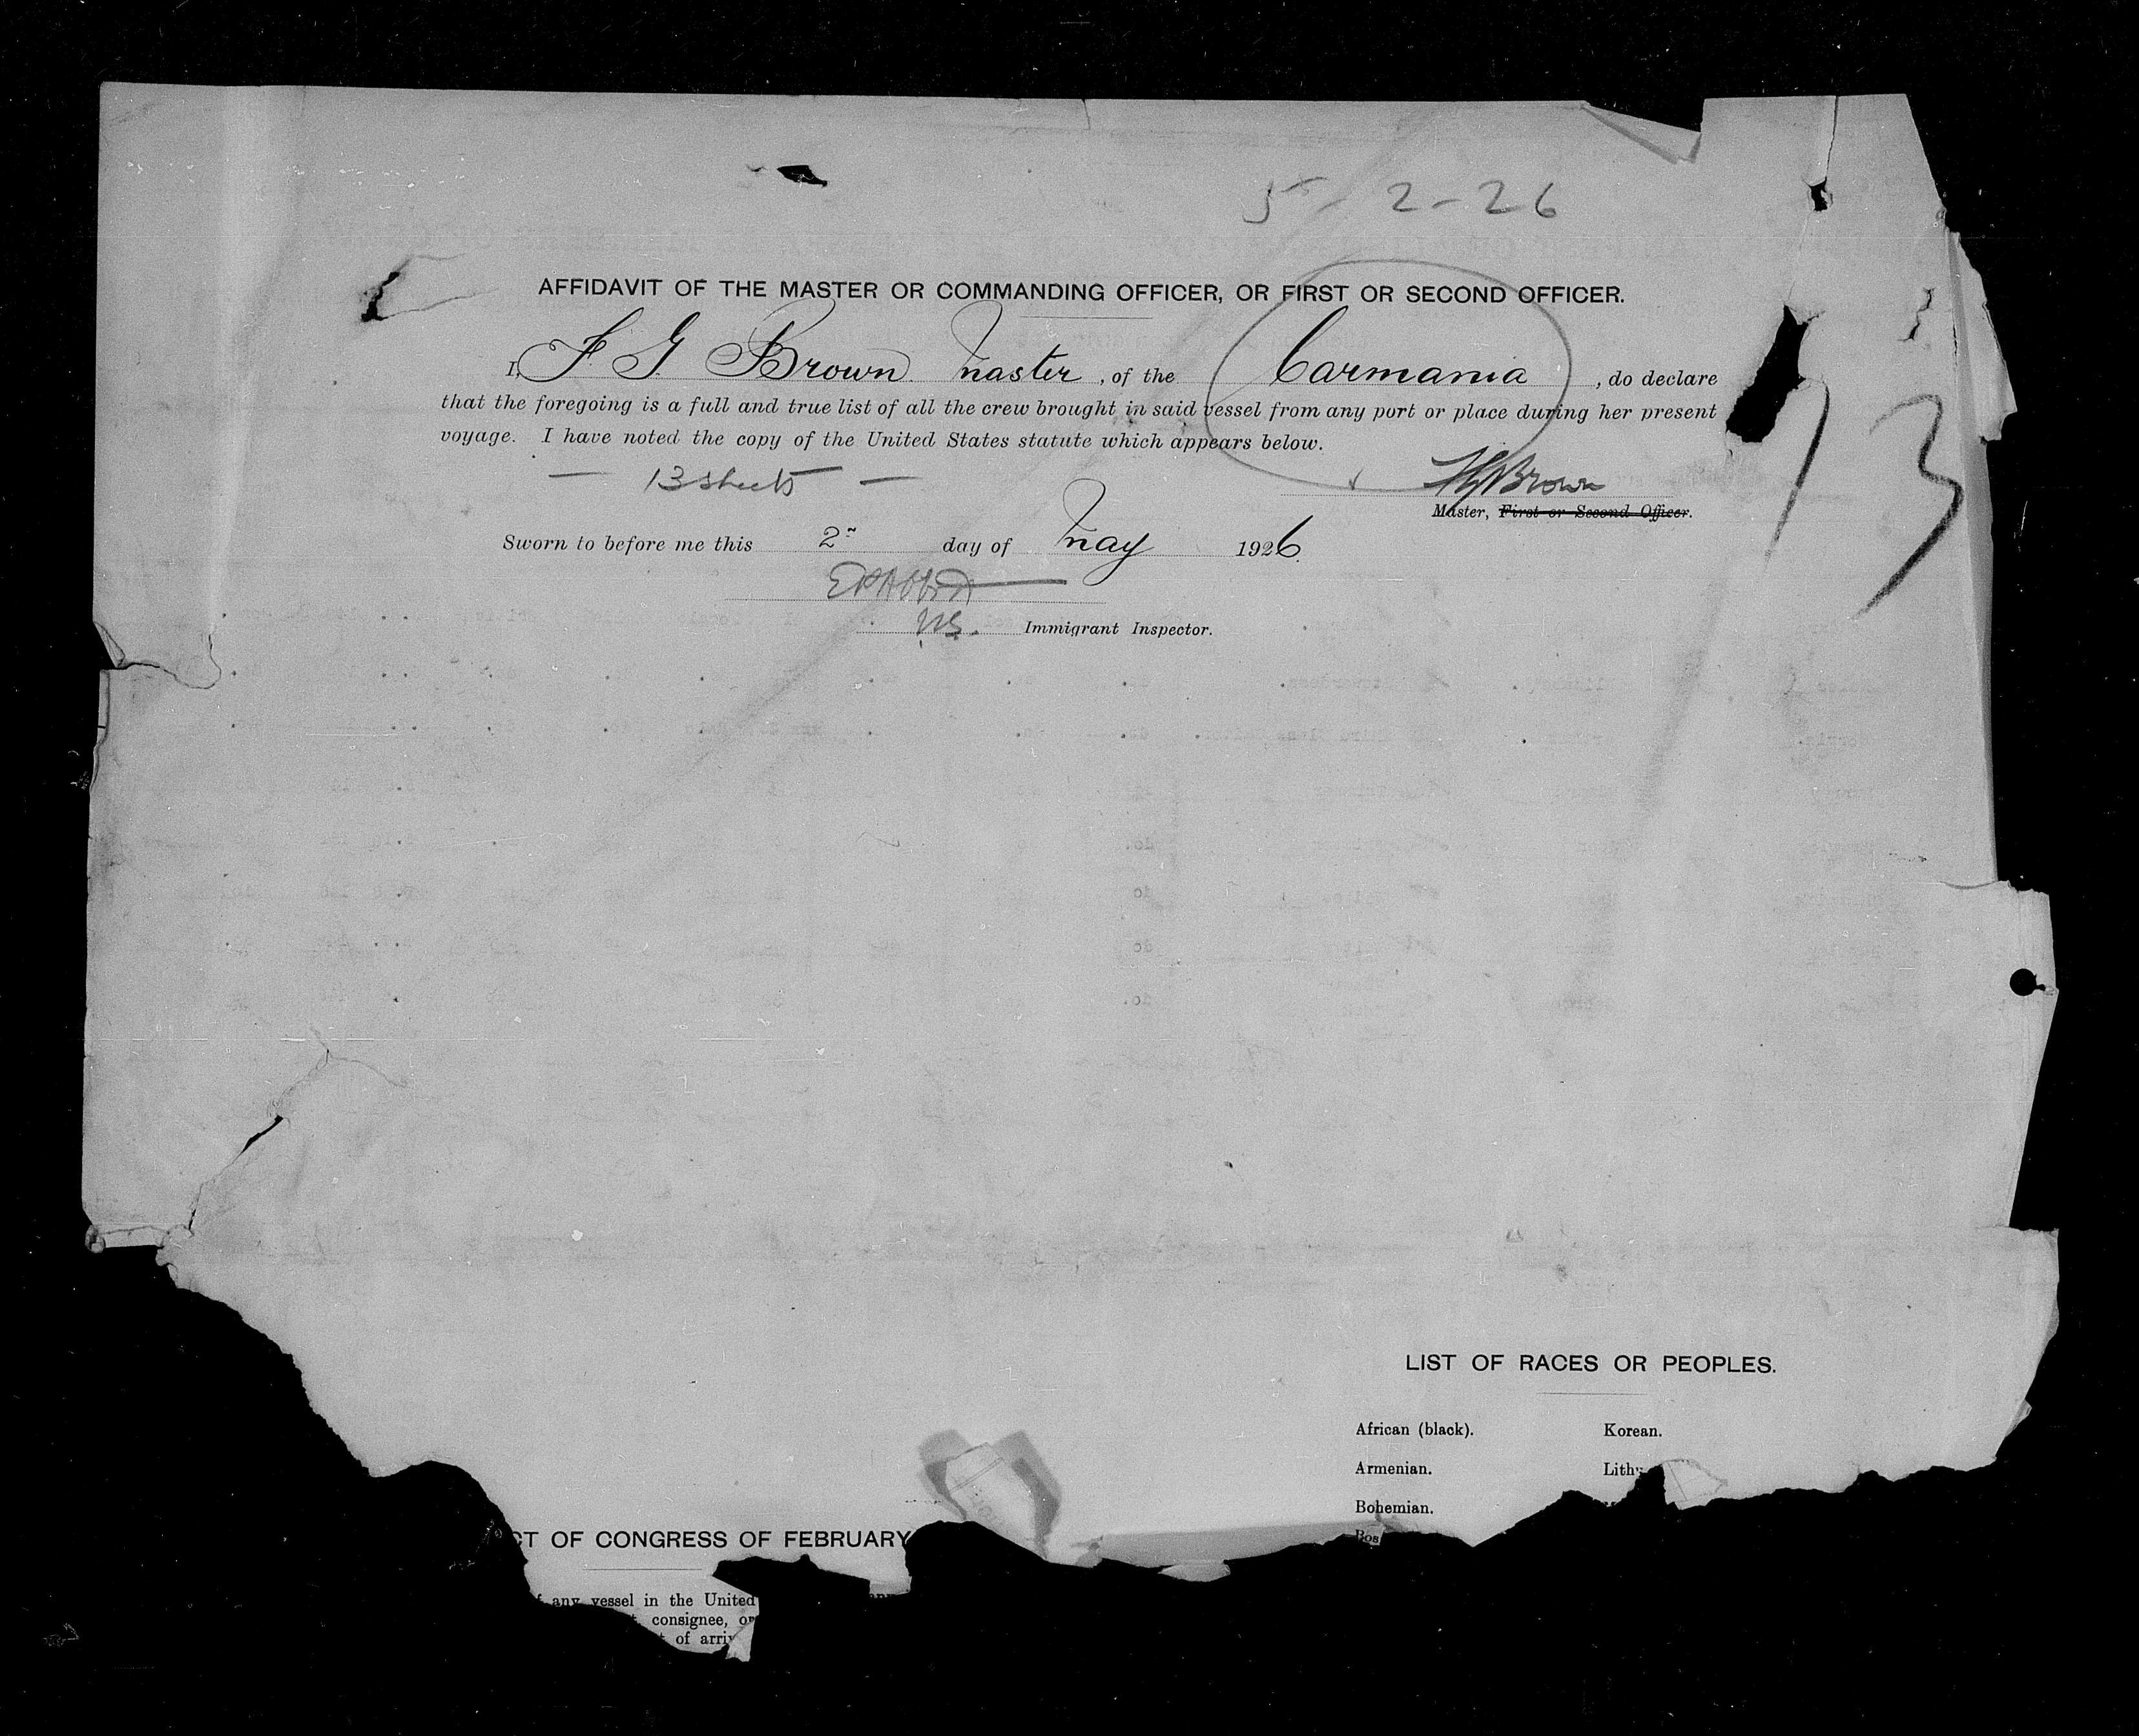 5-2-26
AFFIDAVIT OF THE MASTER OR COMMANDING OFFICER, OR FIRST OR SECOND OFFICER.
I, F. G. Brown master, of the Carmania, do declare
that the foregoing is a full and true list of all the crew brought in said vessel from any port or place during her present
voyage. I have noted the copy of the United States statute which appears below.
— 13 sheets —
FGBrown
Master, First or Second Officer.
13
Sworn to before me this 2" day of May 1926.
U.S. Immigrant Inspector.
LIST OF RACES OR PEOPLES.
African (black). Korean.
Armenian. Lith
Bohemian.
Bos
CT OF CONGRESS OF FEBRUARY
f any vessel in the United
consignee, or
t of arriv